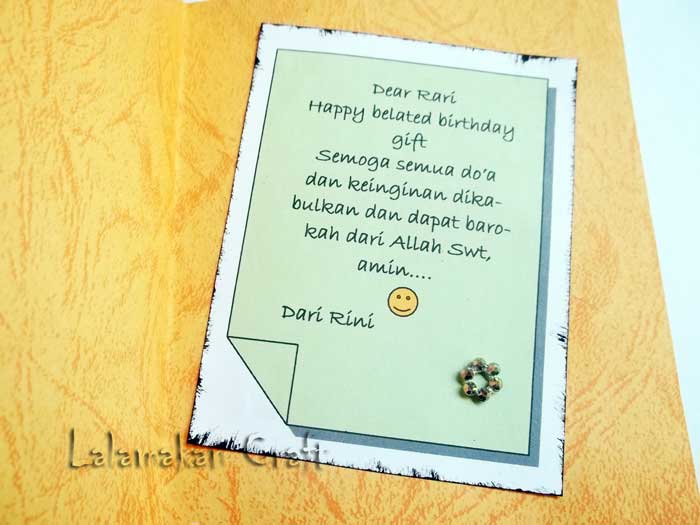 Dear Rari
Happy belated birthday
gift
Semoga semua do'a
dan keinginan dika-
bulkan dan dapat baro-
kah dari Allah Swt,
amin....
Dari Rini
Lalairakan Craft